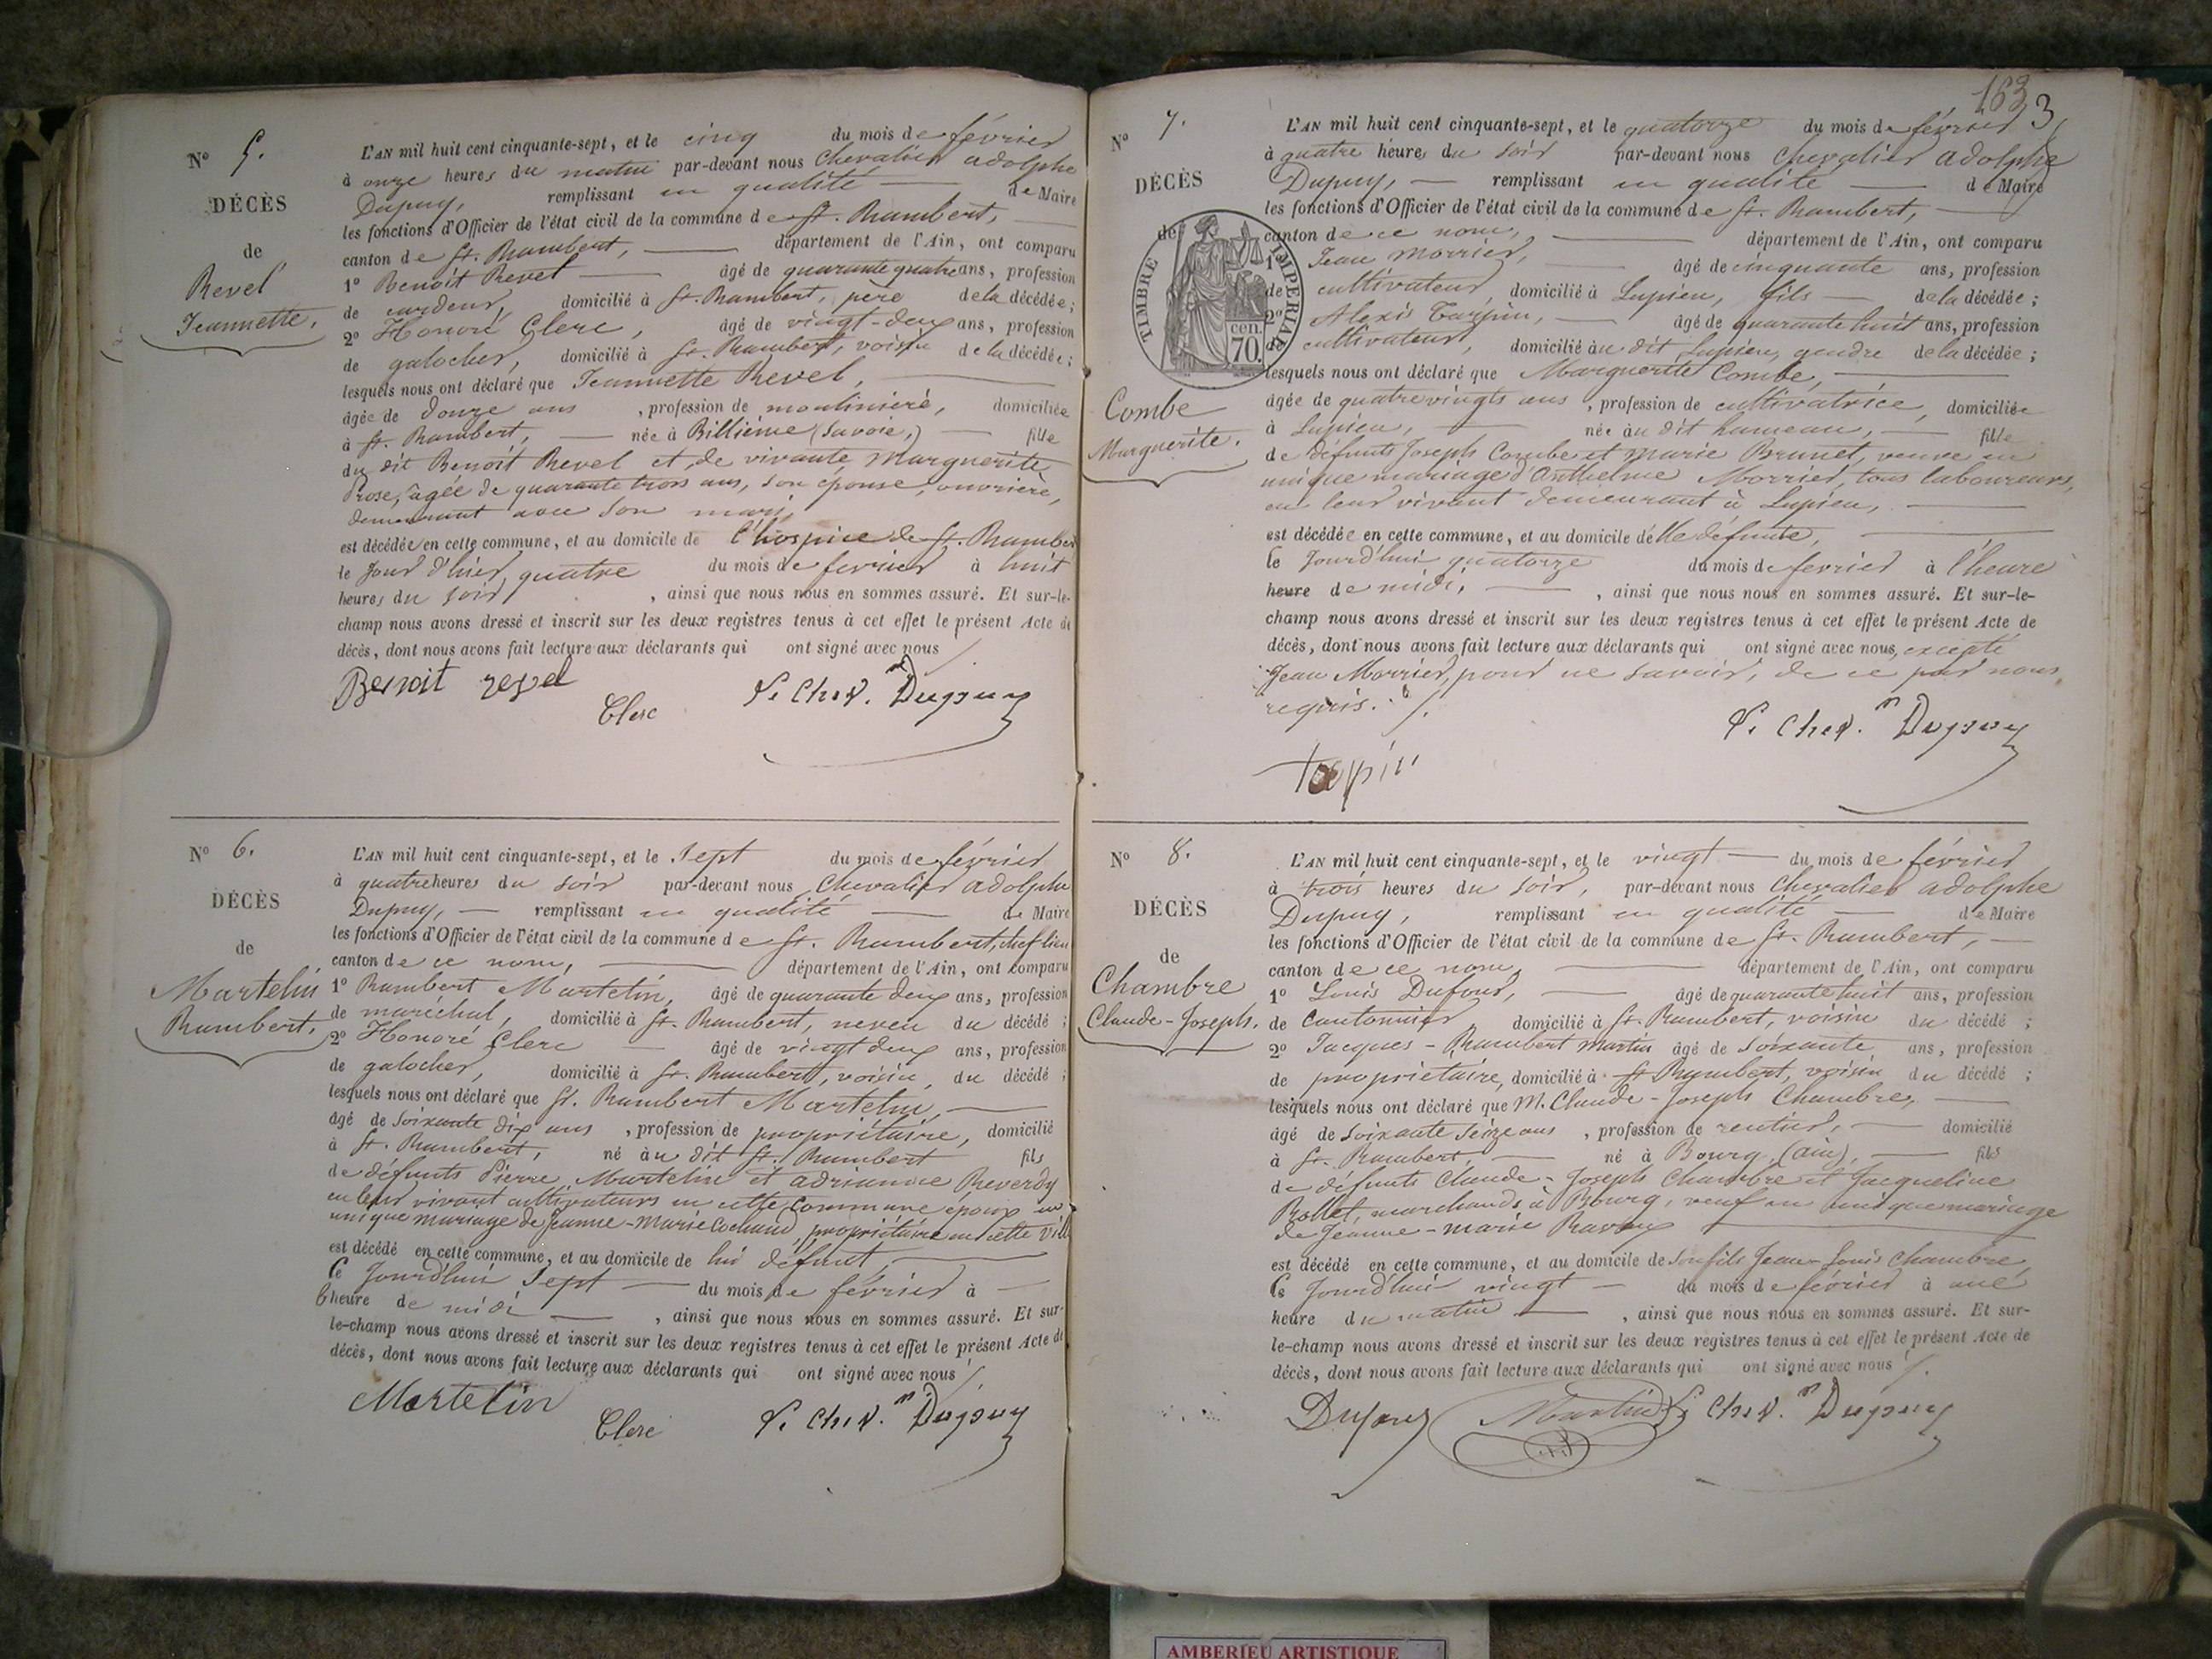 N° 5.
DÉCÈS
de
Revel
Jeannette.
L'AN mil huit cent cinquante-sept, et le cinq du mois de février
à onze heures du matin par-devant nous Chevalier adolphe
Dupuy, remplissant en qualité de Maire
les fonctions d'Officier de l'état civil de la commune de St. Rambert,
canton de St. Rambert, département de l'Ain, ont comparu
1° Benoit Revel âgé de quarante quatre ans, profession
de cardeur, domicilié à St. Rambert, père de la décédée;
2° Honoré Clerc, âgé de vingt-deux ans, profession
de galocher, domicilié à St. Rambert, voisin de la décédée;
lesquels nous ont déclaré que Jeannette Revel,
âgée de douze ans, profession de moulinière, domiciliée
à St. Rambert, née à Billième (Savoie,) fille
du dit Benoit Revel et de vivante Marguerite
Prose, agée de quarante trois ans, son épouse, ouvrière,
demeurant avec son mari,
est décédée en cette commune, et au domicile de l'hospice de St. Rambert
le jour d'hier, quatre du mois de fevrier à huit
heures du soir, ainsi que nous nous en sommes assuré. Et sur-le-
champ nous avons dressé et inscrit sur les deux registres tenus à cet effet le présent Acte de
décès, dont nous avons fait lecture aux déclarants qui ont signé avec nous
Benoit revel
Clerc
Chev. Dupuy
N° 6.
DÉCÈS
de
Martelin
Rambert.
L'AN mil huit cent cinquante-sept, et le sept du mois de février
à quatre heures du soir par-devant nous Chevalier adolphe
Dupuy, remplissant en qualité de Maire
les fonctions d'Officier de l'état civil de la commune de St. Rambert, chef lieu
canton de ce nom, département de l'Ain, ont comparu
1° Rambert Martelin, âgé de quarante deux ans, profession
de maréchal, domicilié à St. Rambert, neveu du décédé;
2° Honoré Clerc âgé de vingt deux ans, profession
de galocher, domicilié à St. Rambert, voisin, du décédé;
lesquels nous ont déclaré que St. Rambert Martelin,
âgé de soixante dix ans, profession de propriétaire, domicilié
à St. Rambert, né au dit St. Rambert fils
de défunts Pierre Martelin et adrianne Reverdy
en leur vivant cultivateurs en cette commune époux en
unique mariage de Jeanne-Marie Cochaud, propriétaire en cette ville
est décédé en cette commune, et au domicile de lui défunt,
Ce Jourd'hui sept du mois de février à
l'heure de midi, ainsi que nous nous en sommes assuré. Et sur-
le-champ nous avons dressé et inscrit sur les deux registres tenus à cet effet le présent Acte de
décès, dont nous avons fait lecture aux déclarants qui ont signé avec nous
Martelin
Clerc
Chev. Dupuy
163
3
N° 7.
DÉCÈS
de
TIMBRE IMPERIAL
cen.
70.
Combe
Marguerite.
L'AN mil huit cent cinquante-sept, et le quatorze du mois de février
à quatre heures du soir par-devant nous Chevalier adolphe
Dupuy, remplissant en qualité de Maire
les fonctions d'Officier de l'état civil de la commune de St. Rambert,
canton de ce nom, département de l'Ain, ont comparu
1° Jean Morrier, âgé de cinquante ans, profession
de cultivateur, domicilié à Lupieu, fils de la décédée;
2° Alexis Tarpin, âgé de quarante huit ans, profession
cultivateur, domicilié au dit Lupieu, gendre de la décédée;
lesquels nous ont déclaré que Marguerite Combe,
âgée de quatre vingts ans, profession de cultivatrice, domiciliée
à Lupieu, née au dit hameau, fille
de défunts Joseph Combe et Marie Brunet, veuve en
unique mariage d'Anthelme Morrier, tous laboureurs,
en leur vivant demeurant à Lupieu,
est décédée en cette commune, et au domicile d'elle défunte,
Ce Jourd'hui quatorze du mois de fevrier à l'heure
heure de midi, ainsi que nous nous en sommes assuré. Et sur-le-
champ nous avons dressé et inscrit sur les deux registres tenus à cet effet le présent Acte de
décès, dont nous avons fait lecture aux déclarants qui ont signé avec nous, excepté
Jean Morrier, pour ne savoir, de ce par nous
requis.
Chev. Dupuy
tarpin
N° 8.
DÉCÈS
de
Chambre
Claude-Joseph.
L'AN mil huit cent cinquante-sept, et le vingt du mois de février
à trois heures du soir, par-devant nous Chevalier adolphe
Dupuy, remplissant en qualité de Maire
les fonctions d'Officier de l'état civil de la commune de St. Rambert,
canton de ce nom, département de l'Ain, ont comparu
1° Louis Dufour, âgé de quarante huit ans, profession
de Cantonnier domicilié à St. Rambert, voisin du décédé;
2° Jacques-Rambert Martin âgé de soixante ans, profession
de propriétaire, domicilié à St Rambert, voisin du décédé;
lesquels nous ont déclaré que M. Claude-Joseph Chambre,
âgé de soixante seize ans, profession de rentier, domicilié
à St. Rambert, né à Bourg, (ain), fils
de défunts Claude-Joseph Chambre et Jacqueline
Rollet, marchands à Bourg, veuf en unique mariage
de Jeanne-Marie
est décédé en cette commune, et au domicile de son fils Jean-Louis Chambre,
Ce Jourd'hui vingt du mois de février à une
heure du matin, ainsi que nous nous en sommes assuré. Et sur-
le-champ nous avons dressé et inscrit sur les deux registres tenus à cet effet le présent Acte de
décès, dont nous avons fait lecture aux déclarants qui ont signé avec nous
Dufour Martin Chev. Dupuy
AMBERIEU ARTISTIQUE